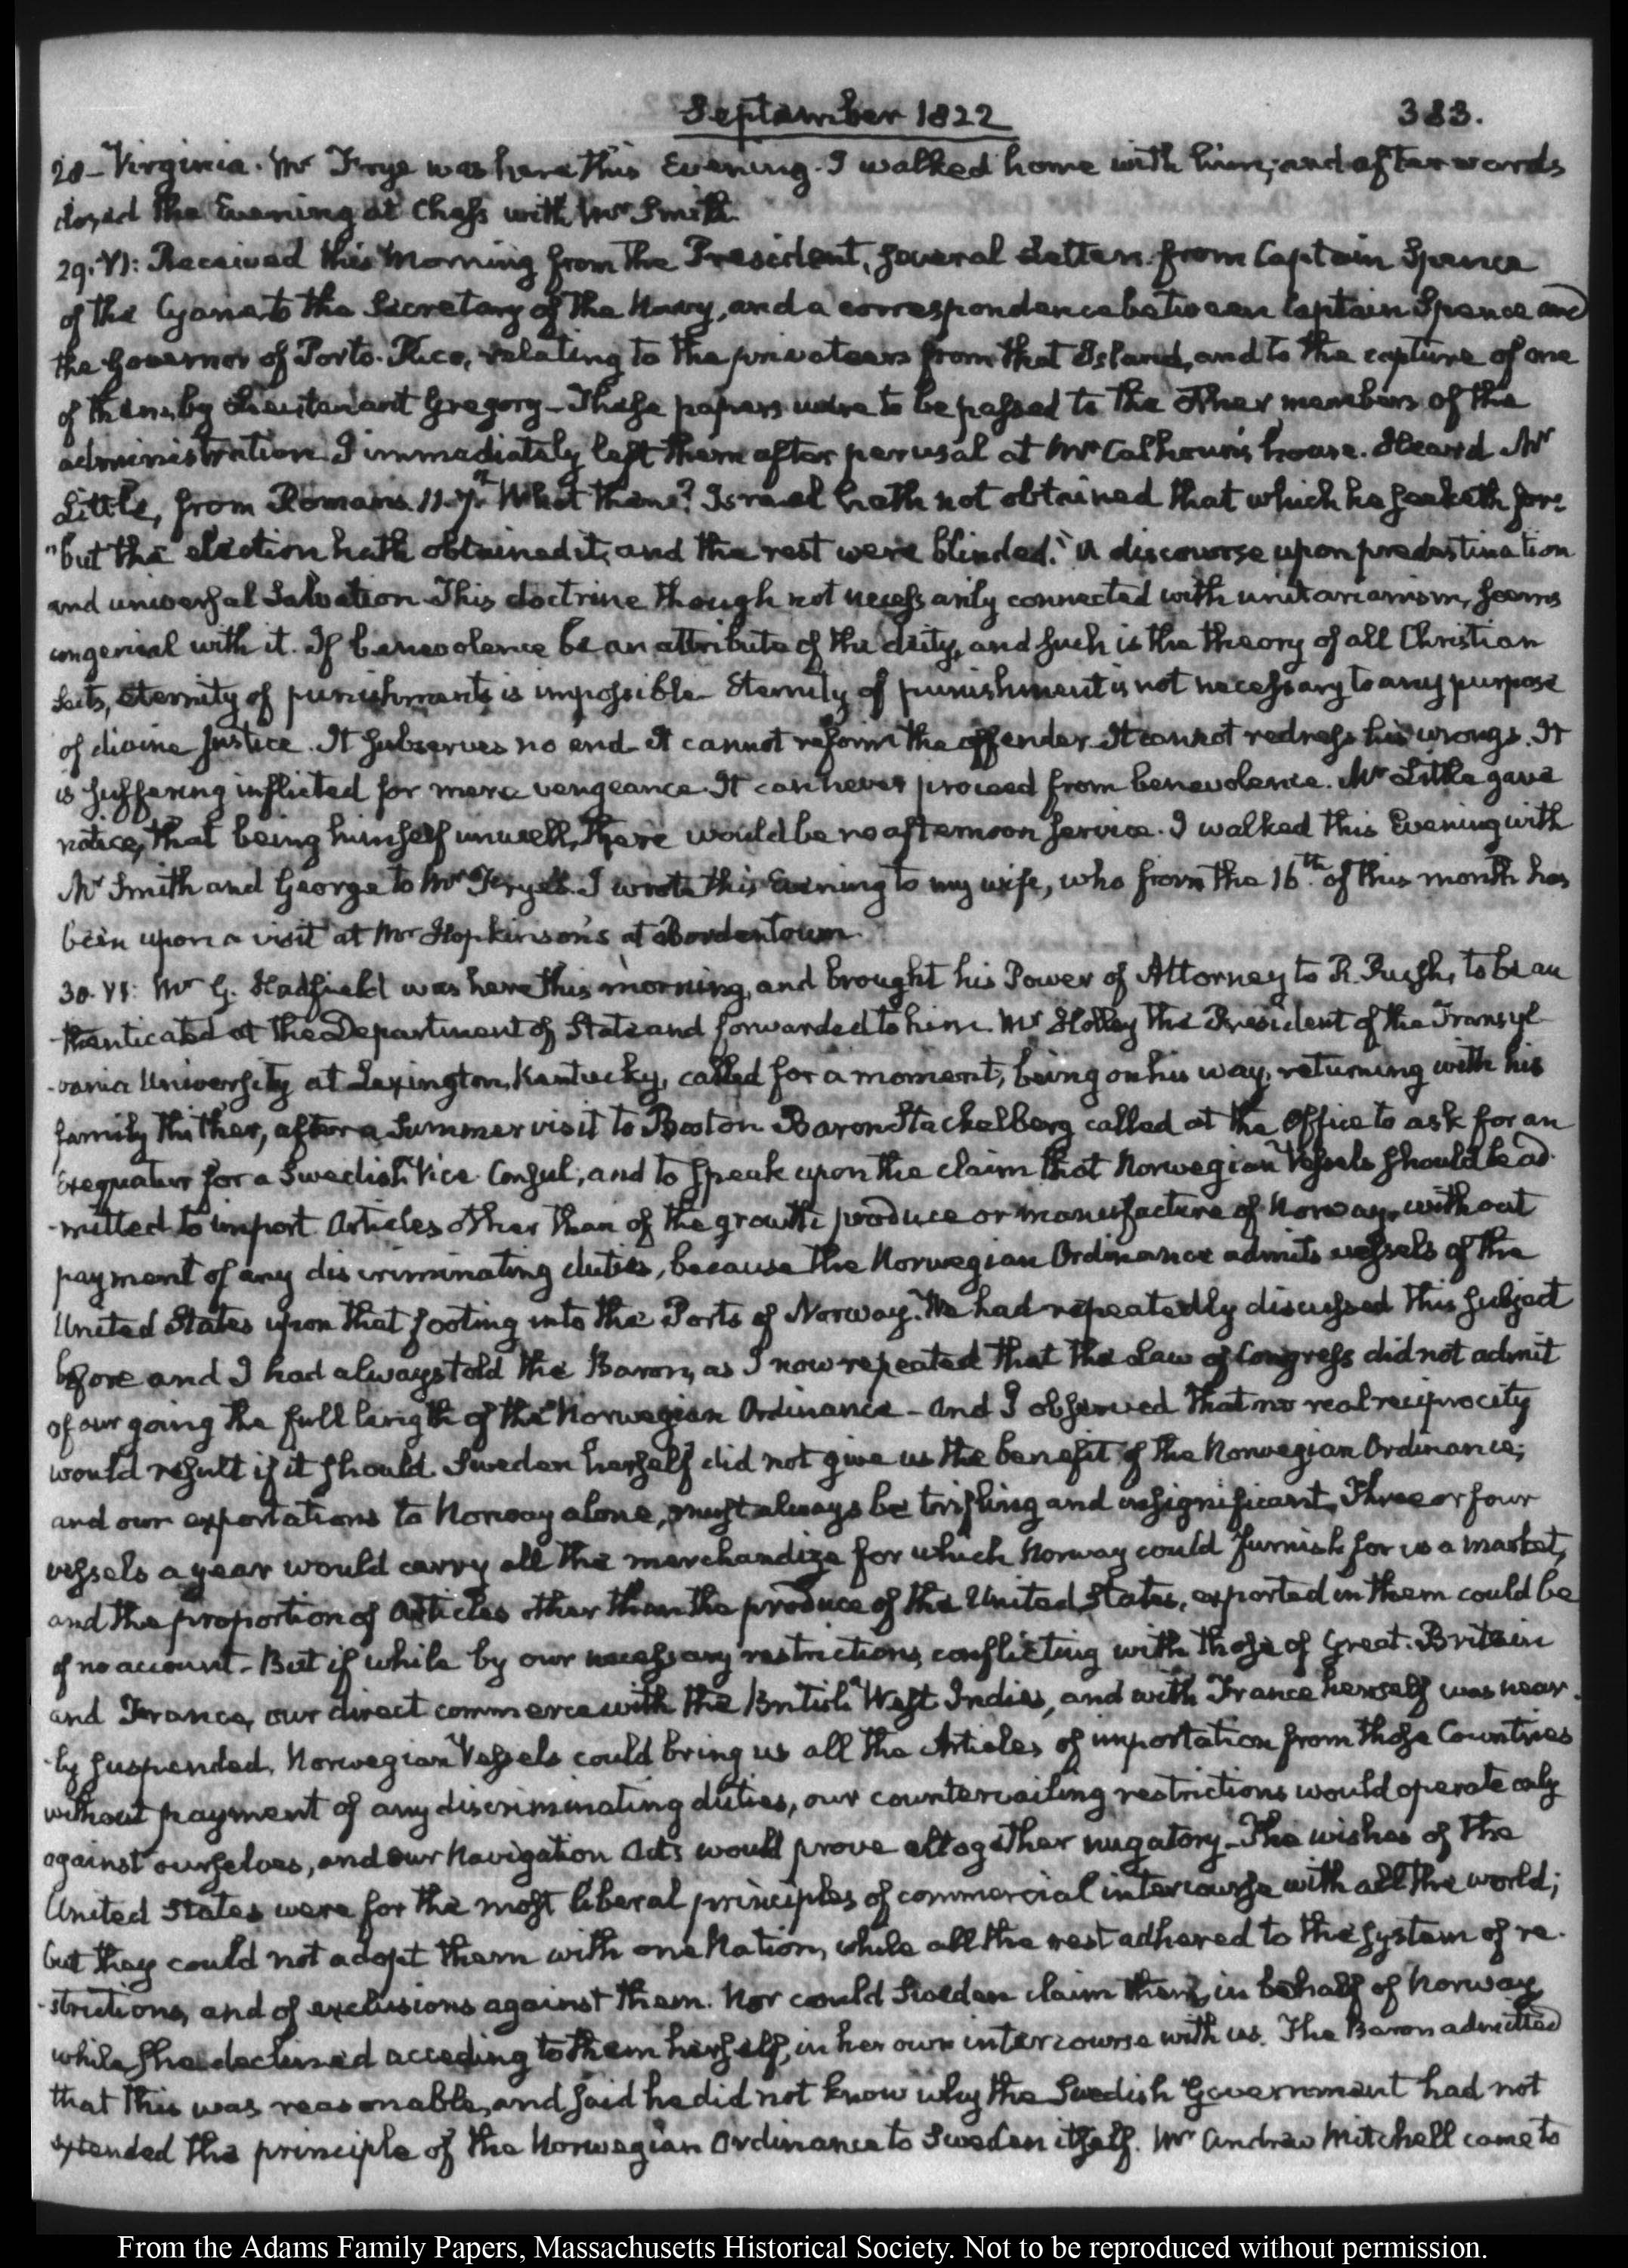 September 1822
383.
28- Virginia. Mr Frye was here this Evening. I walked home with him; and afterwards
closed the Evening at Chess with Mr Smith.
29. VI: Received this Morning from the President, several Letters from Captain Spence
of the Cyane to the Secretary of the Navy, and a correspondence between Captain Spence and
the Governor of Porto-Rico, relating to the privateers from that Island, and to the capture of one
of them, by Lieutenant Gregory- These papers were to be passed to the other members of the
administration. I immediately left them after perusal at Mr Calhoun's house. Heard Mr
Little, from Romans. 11. 7. What then? Israel hath not obtained that which he seeketh for:
"but the election hath obtained it, and the rest were blinded." A discourse upon predestination
and universal Salvation This doctrine though not necessarily connected with unitarianism, seems
congenial with it. If benevolence be an attribute of the deity, and such is the theory of all Christian
Sects, eternity of punishments is impossible- Eternity of punishment is not necessary to any purpose
of divine Justice. It subserves no end- it cannot reform the offender. It cannot redress his wrongs. It
is suffering inflicted for mere vengeance. It can never proceed from benevolence. Mr Little gave
notice, that being himself unwell, there would be no afternoon service. I walked this Evening with
Mr Smith and George to Mr Frye's. I wrote this Evening to my wife, who from the 16th of this month has
been upon a visit at Mr Hopkinson's at Bordentown.
30. VI: Mr G. Hadfield was here this morning, and brought his Power of Attorney to R. Rush, to be au
-thenticated at the Department of State and forwarded to him. Mr Holley the President of the Transyl
-vania University at Lexington, Kentucky, called for a moment, being on his way, returning with his
family thither, after a Summer visit to Boston Baron Stackelberg called at the Office to ask for an
Exequatur for a Swedish Vice Consul; and to speak upon the claim that Norwegian Vessels should be ad
-mitted to import Articles other than of the growth produce or manufacture of Norway, without
payment of any discriminating duties, because the Norwegian Ordinance admits vessels of the
United States upon that footing into the Ports of Norway. We had repeatedly discussed this subject
before and I had always told the Baron, as I now repeated that the Law of Congress did not admit
of our going the full length of the Norwegian Ordinance- and I observed that no real reciprocity
would result if it should. Sweden herself did not give us the benefit of the Norwegian Ordinance;
and our exportations to Norway alone, must always be trifling and insignificant. Three or four
vessels a year would carry all the merchandize for which Norway could furnish for us a market,
and the proportion of Articles other than the produce of the United States, exported in them could be
of no account- But if while by our necessary restrictions, conflicting with those of Great-Britain
and France, our direct commerce with the British West Indies, and with France herself was near
-ly suspended, Norwegian Vessels could bring us all the Articles of importation from those Countries
without payment of any discriminating duties, our countervailing restrictions would operate only
against ourselves, and our Navigation Acts would prove altogether nugatory- The wishes of the
United States were for the most liberal principles of commercial intercourse with all the world;
but they could not adopt them with one Nation, while all the rest adhered to the system of re
-strictions, and of exclusions against them. Nor could Sweden claim them, in behalf of Norway,
while she declined acceding to them herself, in her own intercourse with us. The Baron admitted
that this was reasonable, and said he did not know why the Swedish Government had not
extended the principle of the Norwegian Ordinance to Sweden itself. Mr Andrew Mitchell came to
From the Adams Family Papers, Massachusetts Historical Society. Not to be reproduced without permission.